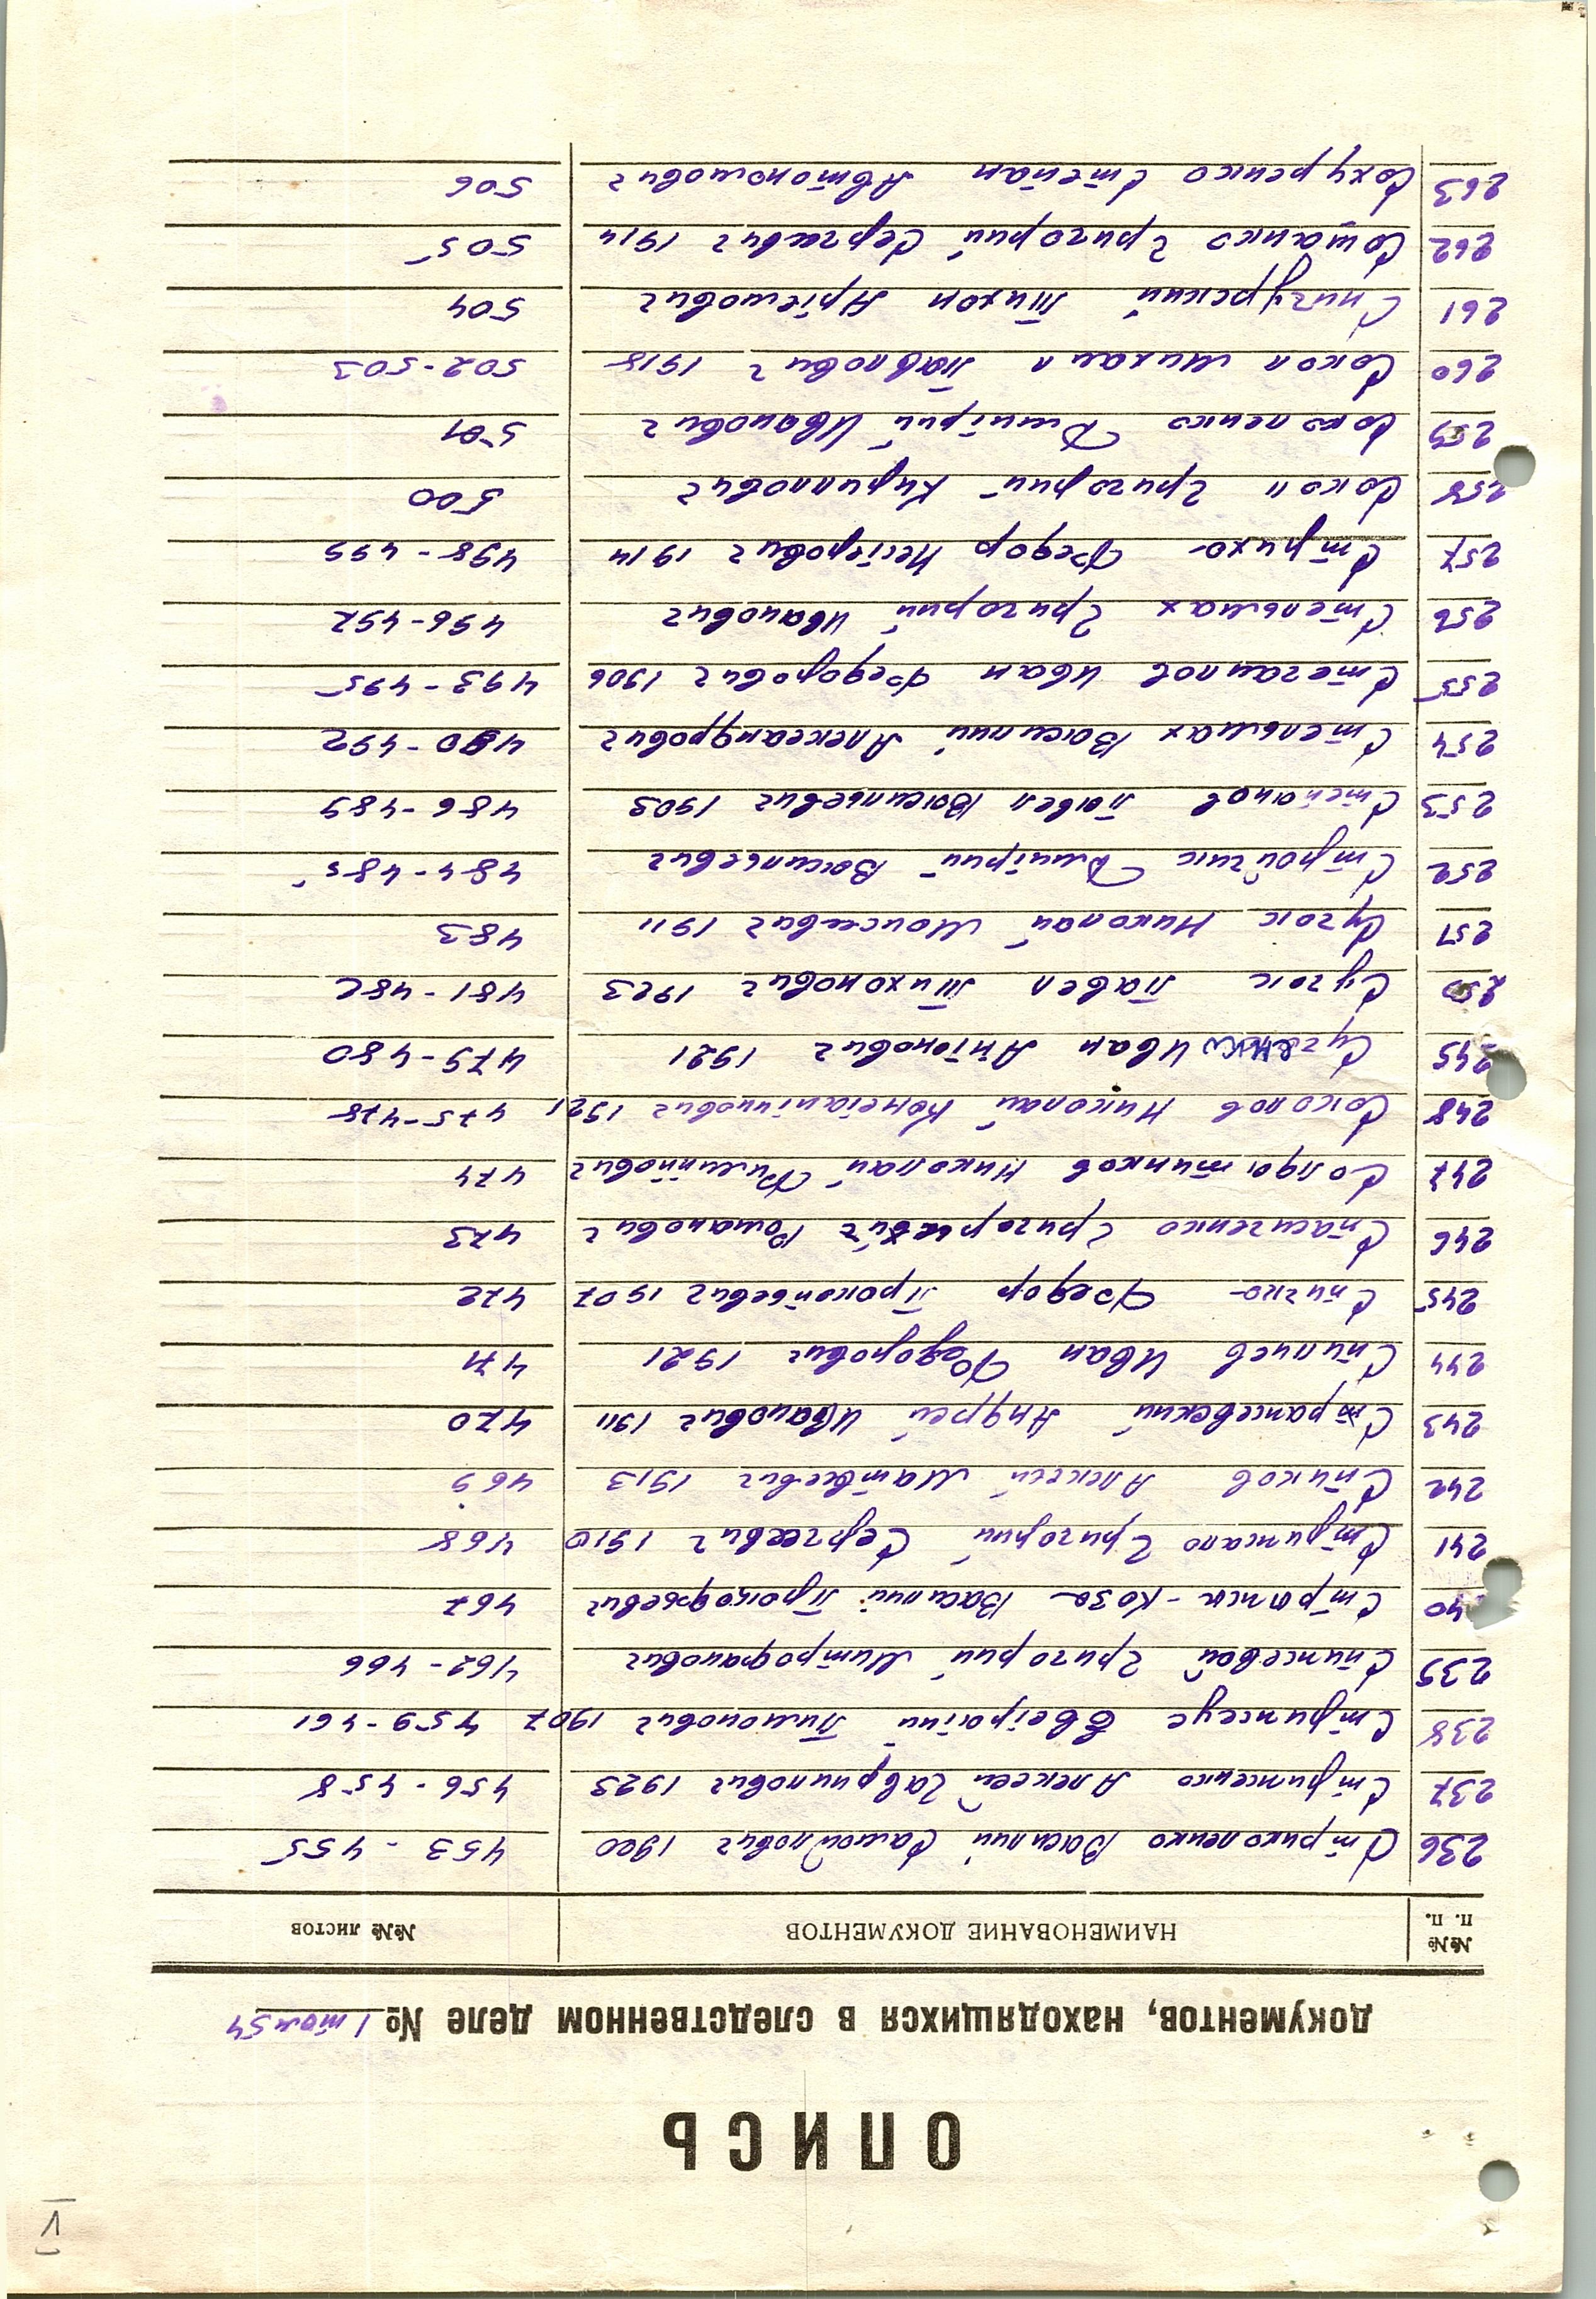 ОПИСЬ
документов, находящихся в следственном деле № 1 том 54
№№ п. п. НАИМЕНОВАНИЕ ДОКУМЕНТОВ №№ листов
236 Стриколенко Василий Самойлович 1900 453 - 455
237 Стриженко Алексей Гаврилович 1923 456 - 458
238 Стрижеус Евстратий Тимонович 1907 459-461
239 Спижевой Григорий Митрофанович 462-466
240 Стрижи-Коза Василий Прокофьевич 467
241 Стрижало Григорий Сергеевич 1910 468
242 Спиков Алексей Матвеевич 1913 469
243 Стражевский Андрей Иванович 1911 470
244 Спицев Иван Федорович 1921 471
245 Спичко Федор Прокопьевич 1907 472
246 Спасиченко Григорий Романович 473
247 Солдатников Николай Филиппович 474
248 Соколов Николай Константинович 1921 475-478
249 Сугенко Иван Антонович 1921 479-480
250 Сугак Павел Тихонович 1923 481-482
251 Сугак Николай Моисеевич 1911 483
252 Стройчик Дмитрий Васильевич 484-485
253 Степанов Павел Васильевич 1903 486-489
254 Стельмах Василий Александрович 490-492
255 Стегашлов Иван Федорович 1906 493-495
256 Стельмах Григорий Иванович 496-497
257 Стрихо Федор Несторович 1914 498-499
258 Сокол Григорий Кириллович 500
259 Соколенко Дмитрий Иванович 501
260 Сокол Михаил Павлович 1918 502-503
261 Снигурский Тихон Артемович 504
262 Сотанко Григорий Сергеевич 1914 505
263 Сохуренко Степан Автономович 506